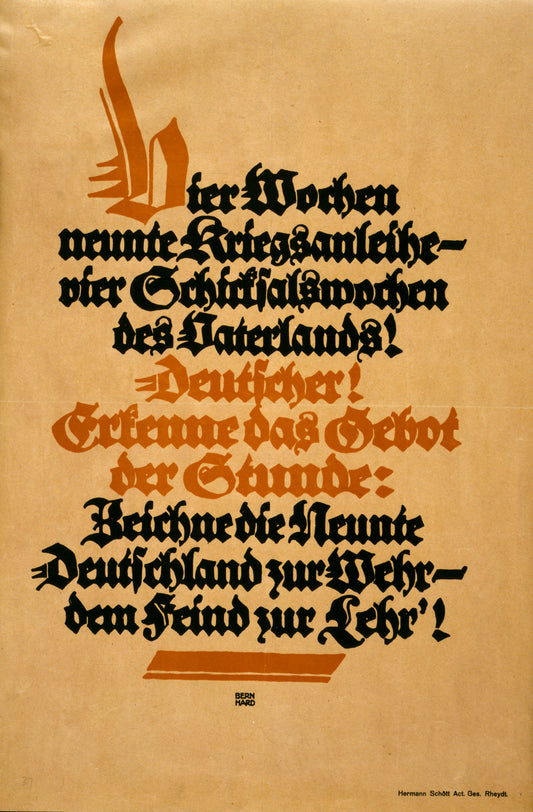 Vier Wochen
neunte Kriegsanleihe—
vier Schicksalswochen
des Vaterlands!
Deutscher!
Erkenne das Gebot
der Stunde:
Zeichne die Neunte
Deutschland zur Wehr—
dem Feind zur Lehr'!
BERN
HARD
Hermann Schött Act. Ges. Rheydt.
37